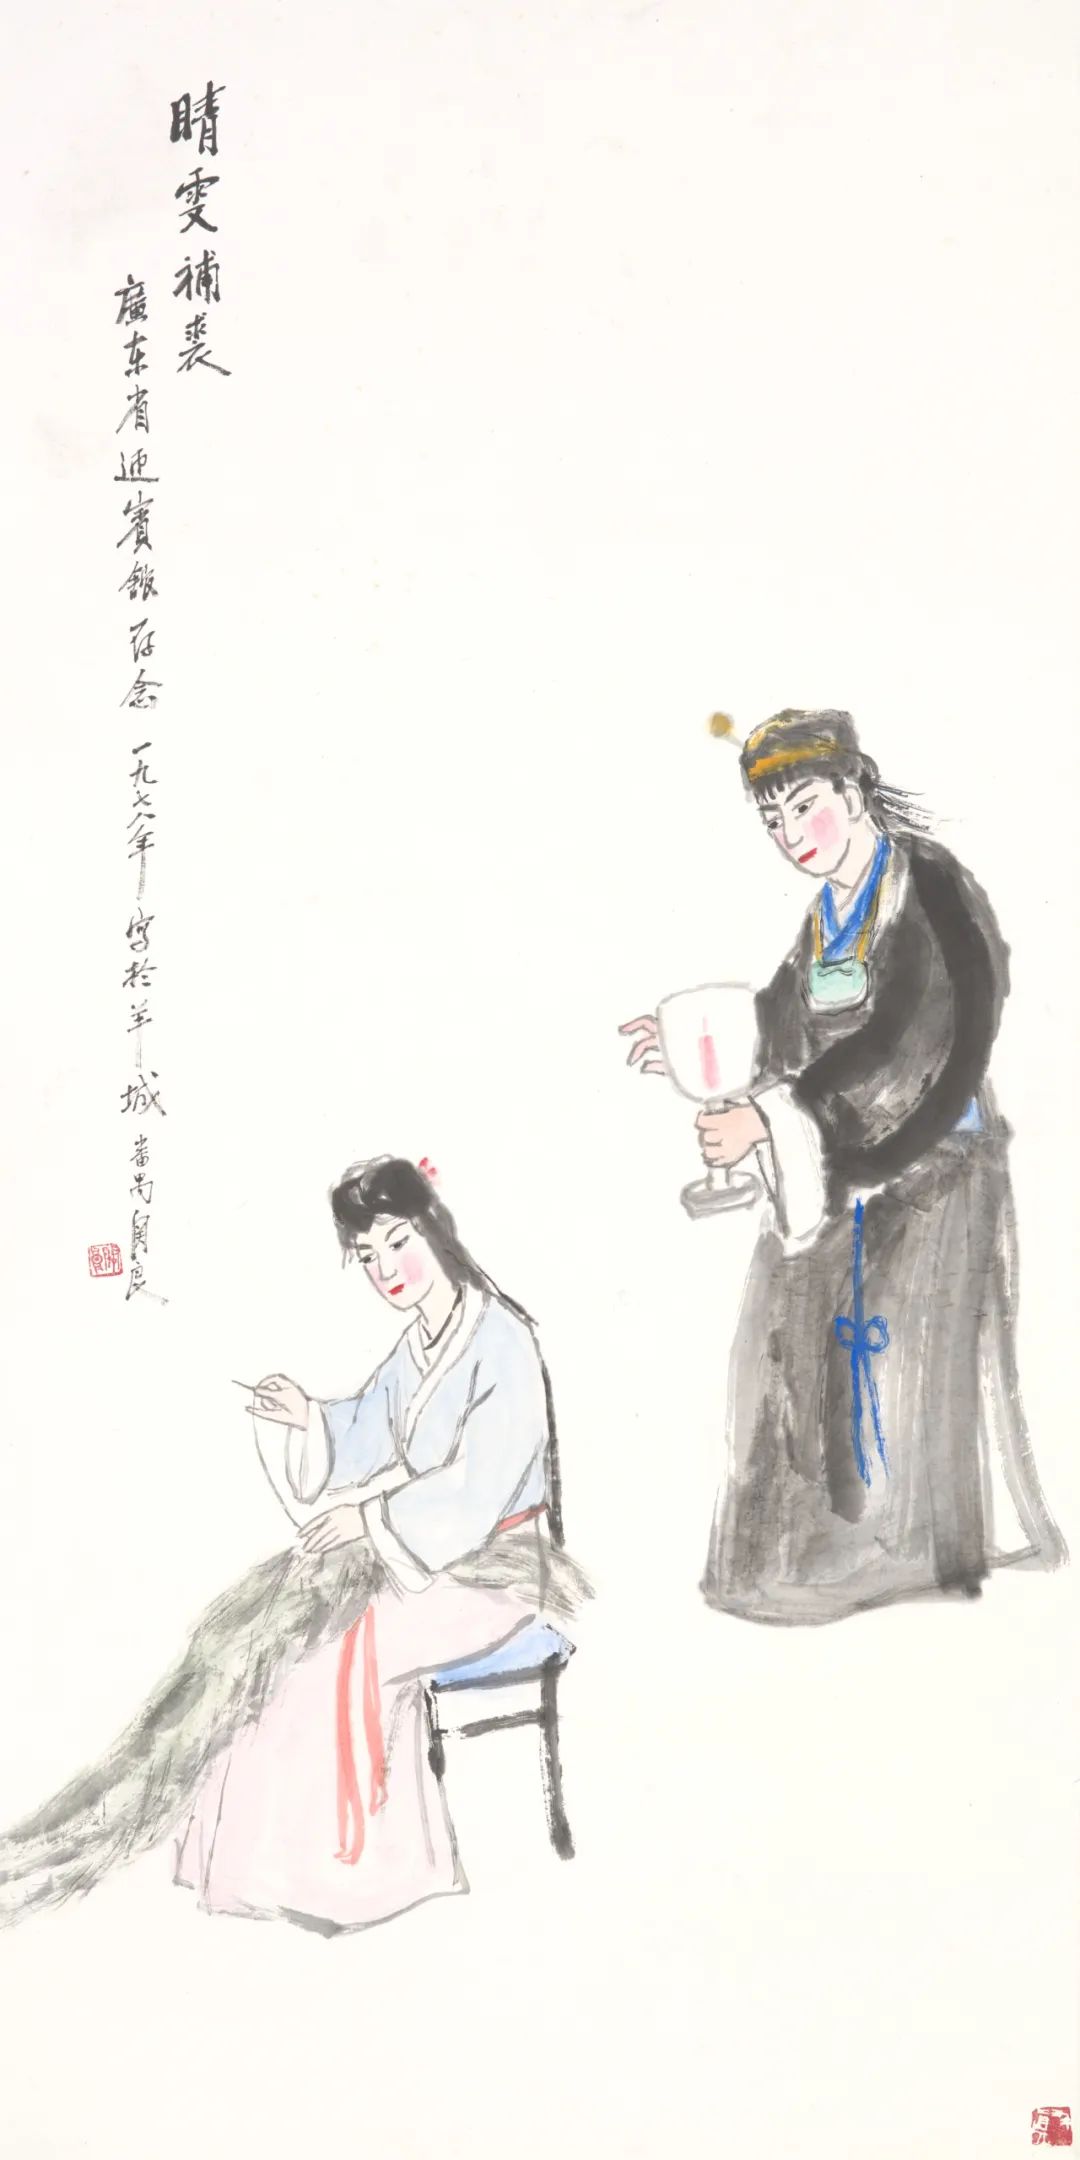 晴雯補裘
廣东省迎賓館存念 一九七八年寫於羊城 番禺関良
關良